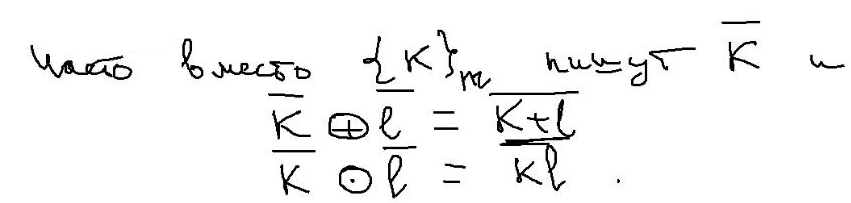 Часто вместо {K}ₘ пишут K̅ и
K̅ ⊕ l̅ = K̅+̅l̅
K̅ ⊙ l̅ = K̅l̅.